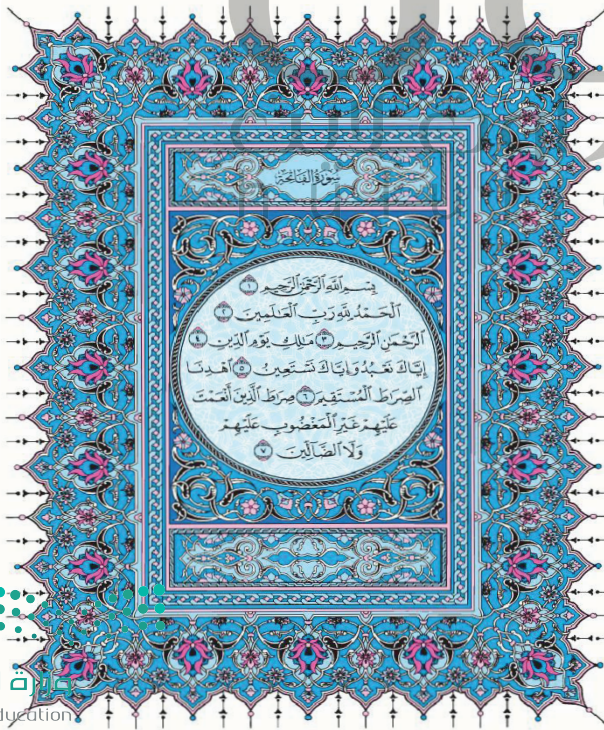 سُورَةُ الفَاتِحَةِ
بِسْمِ ٱللَّهِ ٱلرَّحْمَٰنِ ٱلرَّحِيمِ ١
ٱلْحَمْدُ لِلَّهِ رَبِّ ٱلْعَٰلَمِينَ ٢
ٱلرَّحْمَٰنِ ٱلرَّحِيمِ ٣ مَٰلِكِ يَوْمِ ٱلدِّينِ ٤
إِيَّاكَ نَعْبُدُ وَإِيَّاكَ نَسْتَعِينُ ٥ ٱهْدِنَا
ٱلصِّرَٰطَ ٱلْمُسْتَقِيمَ ٦ صِرَٰطَ ٱلَّذِينَ أَنْعَمْتَ
عَلَيْهِمْ غَيْرِ ٱلْمَغْضُوبِ عَلَيْهِمْ
وَلَا ٱلضَّآلِّينَ ٧
ducation